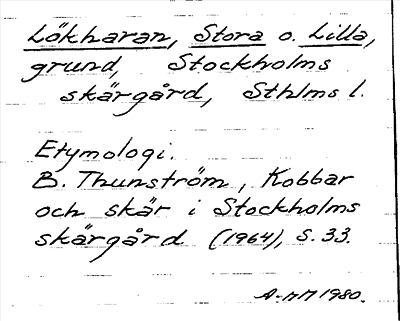 Lökharan, Stora o. Lilla,
grund, Stockholms
skärgård, Sthlms l.
Etymologi.
B. Thunström, Kobbar
och skär i Stockholms
skärgård (1964), s. 33.
A-MM 1980.